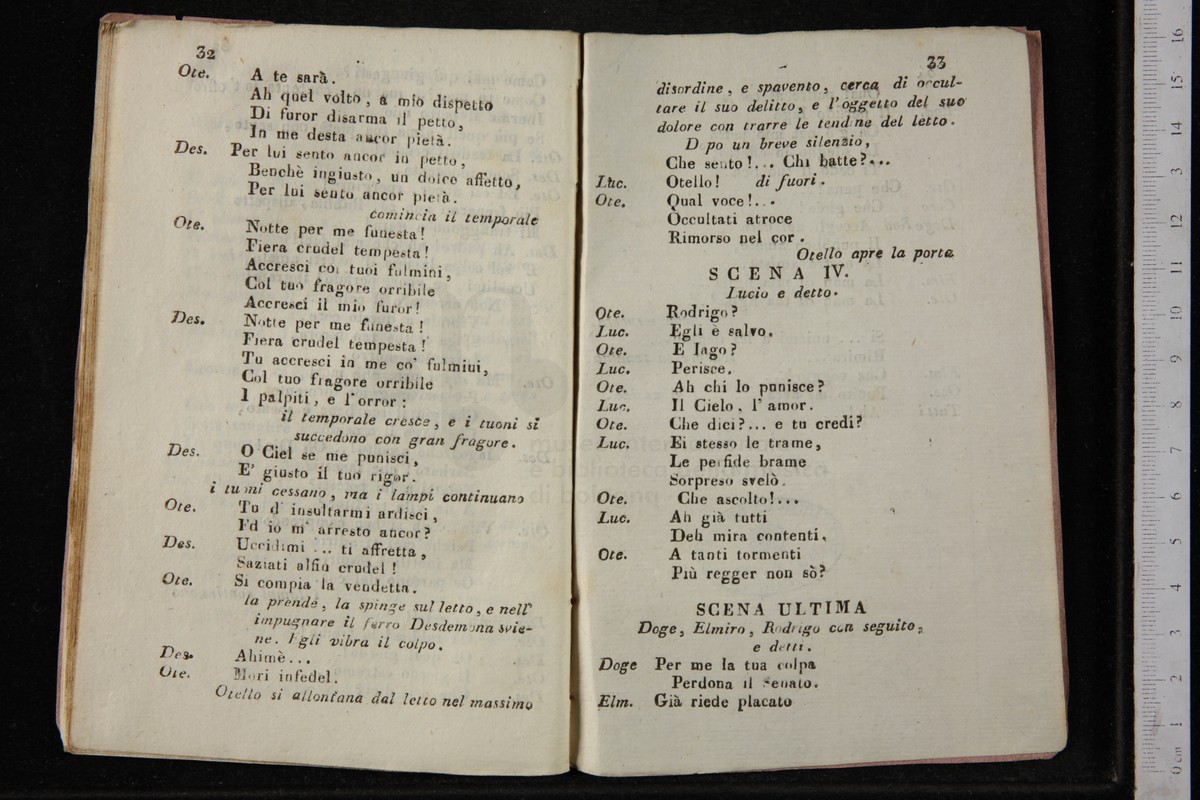 32
Ote. A te sarà.
Ah quel volto, a mio dispetto
Di furor disarma il petto,
In me desta ancor pietà.
Des. Per lui sento ancor in petto,
Benchè ingiusto, un dolce affetto,
Per lui sento ancor pietà.
comincia il temporale
Ote. Notte per me funesta!
Fiera crudel tempesta!
Accresci coi tuoi fulmini,
Col tuo fragore orribile
Accresci il mio furor!
Des. Notte per me funesta!
Fiera crudel tempesta!
Tu accresci in me co' fulmini,
Col tuo fragore orribile
I palpiti, e l'orror:
il temporale cresce, e i tuoni si
succedono con gran fragore.
Des. O Ciel se me punisci,
E' giusto il tuo rigor.
i tuoni cessano, ma i lampi continuano
Ote. Tu d' insultarmi ardisci,
Ed io m' arresto ancor?
Des. Uccidimi ... ti affretta,
Saziati alfin crudel!
Ote. Si compia la vendetta.
la prende, la spinge sul letto, e nell'
impugnare il ferro Desdemona svie-
ne. Egli vibra il colpo.
Des. Ahimè...
Ote. Mori infedel.
Otello si allontana dal letto nel massimo
33
disordine, e spavento, cerca di occul-
tare il suo delitto, e l'oggetto del suo
dolore con trarre le tendine del letto.
D po un breve silenzio,
Che sento!... Chi batte?...
Luc. Otello! di fuori.
Ote. Qual voce!...
Occultati atroce
Rimorso nel cor.
Otello apre la porta
SCENA IV.
Lucio e detto.
Ote. Rodrigo?
Luc. Egli è salvo.
Ote. E Iago?
Luc. Perisce.
Ote. Ah chi lo punisce?
Luc. Il Cielo, l'amor.
Ote. Che dici?... e tu credi?
Luc. Ei stesso le trame,
Le perfide brame
Sorpreso svelò.
Ote. Che ascolto!...
Luc. Ah già tutti
Deh mira contenti,
Ote. A tanti tormenti
Più regger non sò?
SCENA ULTIMA
Doge, Elmiro, Rodrigo con seguito,
e detti.
Doge Per me la tua colpa
Perdona il Senato.
Elm. Già riede placato